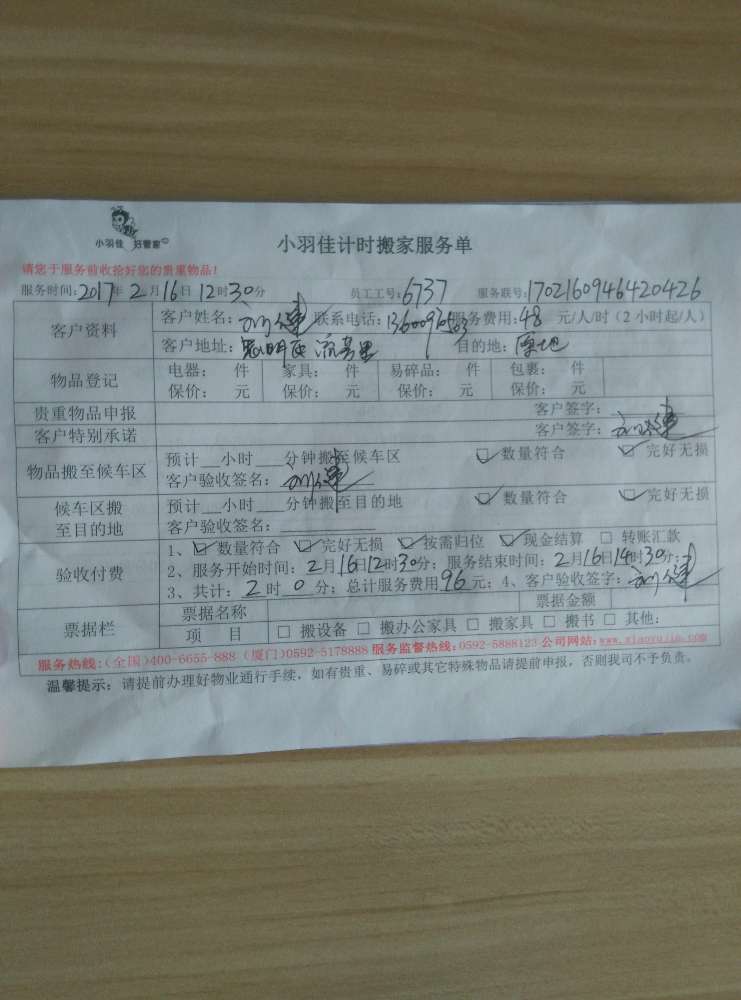 小羽佳 好管家
小羽佳计时搬家服务单
请您于服务前收捡好您的贵重物品!
服务时间:2017年2月16日12时30分 员工工号:6737 服务联号:1702160946420426
客户资料 客户姓名: 联系电话: 服务费用:48 元/人/时(2小时起/人)
客户地址:思明区 目的地:
物品登记 电器: 件 家具: 件 易碎品: 件 包裹: 件
保价: 元 保价: 元 保价: 元 保价: 元
贵重物品申报 客户签字:
客户特别承诺 客户签字:
物品搬至候车区 预计__小时__分钟搬至候车区 ☑数量符合 ☑完好无损
客户验收签名:
候车区搬至目的地 预计__小时__分钟搬至目的地 ☑数量符合 ☑完好无损
客户验收签名:
验收付费 1、☑数量符合 ☑完好无损 ☑按需归位 ☑现金结算 □转账汇款
2、服务开始时间:2月16日12时30分;服务结束时间:2月16日14时30分;
3、共计:2时0分;总计服务费用96元;4、客户验收签字:
票据栏 票据名称 票据金额
项 目 □搬设备 □搬办公家具 □搬家具 □搬书 □其他:
服务热线:(全国)400-6655-888 (厦门)0592-5178888 服务监督热线:0592-5888123 公司网站:www.xiaoyujia.com
温馨提示:请提前办理好物业通行手续,如有贵重、易碎或其它特殊物品请提前申报,否则我司不予负责。